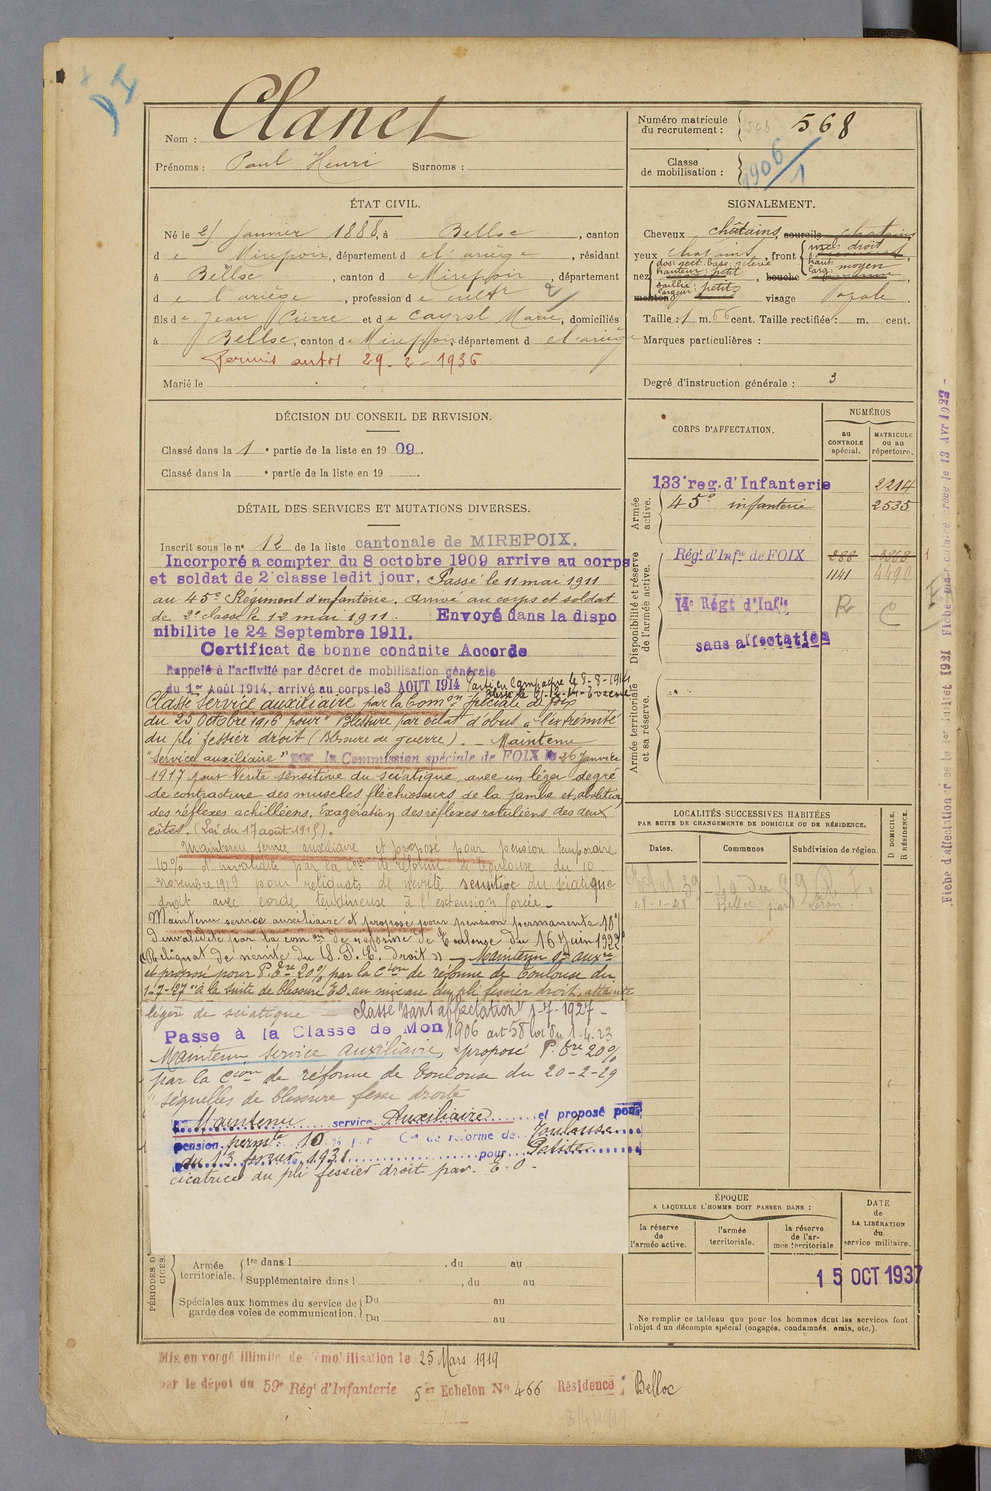 Nom : Clanet
Prénoms : Paul Henri Surnoms :
Numéro matricule
du recrutement : 568
Classe
de mobilisation : 1906/1
ÉTAT CIVIL.
Né le 25 janvier 1888, à Belloc, canton
de Mirepoix, département d el ariège, résidant
à Belloc, canton de Mirepoix, département
de l'ariège, profession de cultr
fils de Jean Pierre et de Cayrol Marie, domiciliés
à Belloc, canton de Mirepoix, département d el ariège
Permis auto 29-2-1936
Marié le
SIGNALEMENT.
Cheveux châtains, sourcils chatains
yeux chatains, front incl: droit
haut:
larg: moyen
nez dos: rect. base: relevé
hauteur: petit, bouche
saillie:
largeur: petits
menton visage Ovale
Taille : 1 m. 66 cent. Taille rectifiée : m. cent.
Marques particulières :
Degré d'instruction générale : 3
DÉCISION DU CONSEIL DE REVISION.
Classé dans la 1e partie de la liste en 1909.
Classé dans la e partie de la liste en 19
CORPS D'AFFECTATION.
NUMÉROS
au
CONTROLE
spécial.
MATRICULE
ou au
répertoire.
Armée
active.
133e reg. d'Infanterie 2214
45e infanterie 2535
Disponibilité et réserve
de l'armée active.
Régt d'Infie de FOIX 288 3368
1141 4490
Régt d'Infie
sans affectation
Armée territoriale
et sa réserve.
DÉTAIL DES SERVICES ET MUTATIONS DIVERSES.
Inscrit sous le no 12 de la liste cantonale de MIREPOIX.
Incorporé a compter du 8 octobre 1909 arrive au corps
et soldat de 2e classe ledit jour. Passé le 11 mai 1911
au 45e Régiment d'infanterie. arrivé au corps et soldat
de 2e classe le 12 mai 1911. Envoyé dans la dispo
nibilite le 24 Septembre 1911.
Certificat de bonne conduite Accorde
Rappelé à l'activité par décret de mobilisation générale
du 1er Août 1914, arrivé au corps le 3 AOUT 1914 Parti en Campagne le 8-8-1914
Classé service auxiliaire par la Comon Spéciale de Foix
du 25 Octobre 1916 pour "Blessure par éclat d'obus à l'extrémité
du pli fessier droit (Blessure de guerre). - Maintenu
"service auxiliaire" par la Commission spéciale de FOIX le 26 Janvier
1917 pour névrite sensitive du sciatique, avec un léger degré
de contracture des muscles fléchisseurs de la jambe et abolition
des réflexes achilléens, exagération des réflexes rotuliens des deux
côtés. (Loi du 17 août 1915).
Maintenu service auxiliaire et proposé pour pension temporaire
10% d'invalidité par la Con de réforme de Toulouse du 10
novembre 1919 pour reliquats de névrite sensitive du sciatique
droit avec corde tendineuse à l'extension forcée.-
Maintenu service auxiliaire et proposé pour pension permanente 10%
d'invalidité par la com on de réforme de Toulouse du 16 juin 1922
(Reliquat de névrite du S.P.E. droit) - Maintenu Sce auxre
et proposé pour P.tre 20% par la cion de réforme de Toulouse du
1-7-27 "à la suite de blessure E.O. au niveau du pli fessier droit, atteinte
légère de sciatique - classé "sans affectation" 1-7-1927 -
Passé à la Classe de Mon 1906 art 58 loi du 1-4-23
Maintenu service auxiliaire, proposé P. tre 20%
par la cion de réforme de Toulouse du 20-2-29
"séquelles de blessure fesse droite
Maintenu service Auxiliaire et proposé pour
pension permte 10 % par Con de réforme de Toulouse
du 13 février 1931 pour Petite
cicatrice du pli fessier droit par E.O -
LOCALITÉS SUCCESSIVES HABITÉES
PAR SUITE DE CHANGEMENTS DE DOMICILE OU DE RÉSIDENCE.
Dates.
Communes
Subdivision de région.
D DOMICILE.
R RÉSIDENCE.
Belloc par Léran
ÉPOQUE
A LAQUELLE L'HOMME DOIT PASSER DANS :
la réserve
de
l'armée active.
l'armée
territoriale.
la réserve
de l'ar-
mée territoriale
DATE
de
LA LIBÉRATION
du
service militaire.
15 OCT 1937
Ne remplir ce tableau que pour les hommes dont les services font
l'objet d'un décompte spécial (engagés, condamnés, omis, etc.).
Armée
territoriale. 1re dans l , du au
Supplémentaire dans l , du au
Spéciales aux hommes du service de
garde des voies de communication. Du au
Du au
Mis en congé illimité de démobilisation le 25 Mars 1919
par le dépôt du 59e Régt d'Infanterie 5er Echelon No 466 Résidence : Belloc